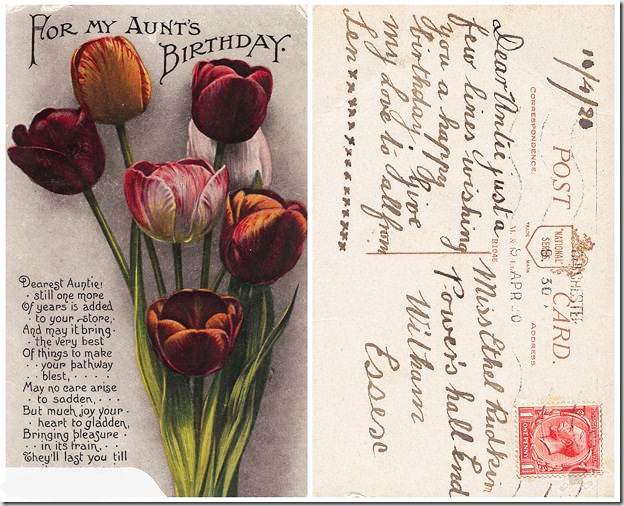 FOR MY AUNT'S
BIRTHDAY.
Dearest Auntie!
still one more
Of years is added
to your store,
And may it bring
the very best
Of things to make
your pathway
blest,
May no care arise
to sadden,
But much joy your
heart to gladden,
Bringing pleasure
in its train
They'll last you till
10/4/20
POST CARD.
CORRESPONDENCE.
ADDRESS
TRADE MARK
"NATIONAL"
SERIES
M. & L.
R1046
8 30
APR
Dear Auntie just a
few lines wishing
you a happy
birthday. Give
my love to all from
Len xxxxxxxxxxxxx
Miss Ethel Rudkin
Powers hall End
Witham
Essex
ONE PENNY